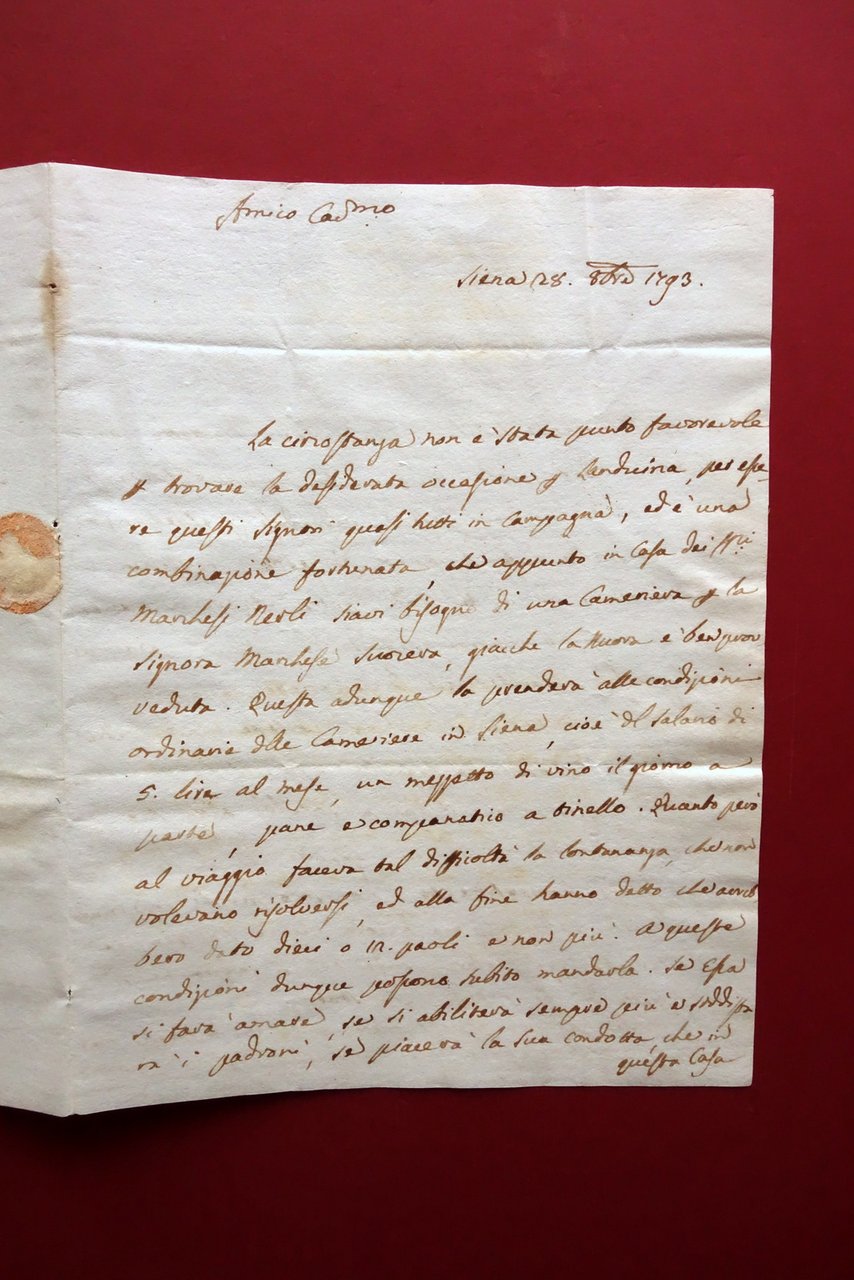 Amico Cadmo
Siena 28. 8bre 1793.
La circostanza non è stata punto favorevole
p trovare la desiderata occasione p Landucina, per esse-
re questi Signori quasi tutti in Campagna, ed è una
combinazione fortunata, che appunto in Casa dei SSri
Marchesi Nerli siavi bisogno di una Cameriera p la
Signora Marchese Suocera, giacche la Nuora è ben prov-
veduta. Questa adunque la prenderà alle condizioni
ordinarie delle Cameriere in Siena, cioè del salario di
5. lire al mese, un mezzetto di vino il giorno a
parte, pane e companatico a tinello. Quanto però
al viaggio faceva tal difficoltà la lontananza, che non
volevano risolversi, ed alla fine hanno detto che avreb
bero dato dieci o 12. paoli e non più. A queste
condizioni dunque possono subito mandarla. Se Essa
si farà amare, se si abiliterà sempre più e soddisfa
rà i padroni, se piacerà la sua condotta, che in
questa Casa